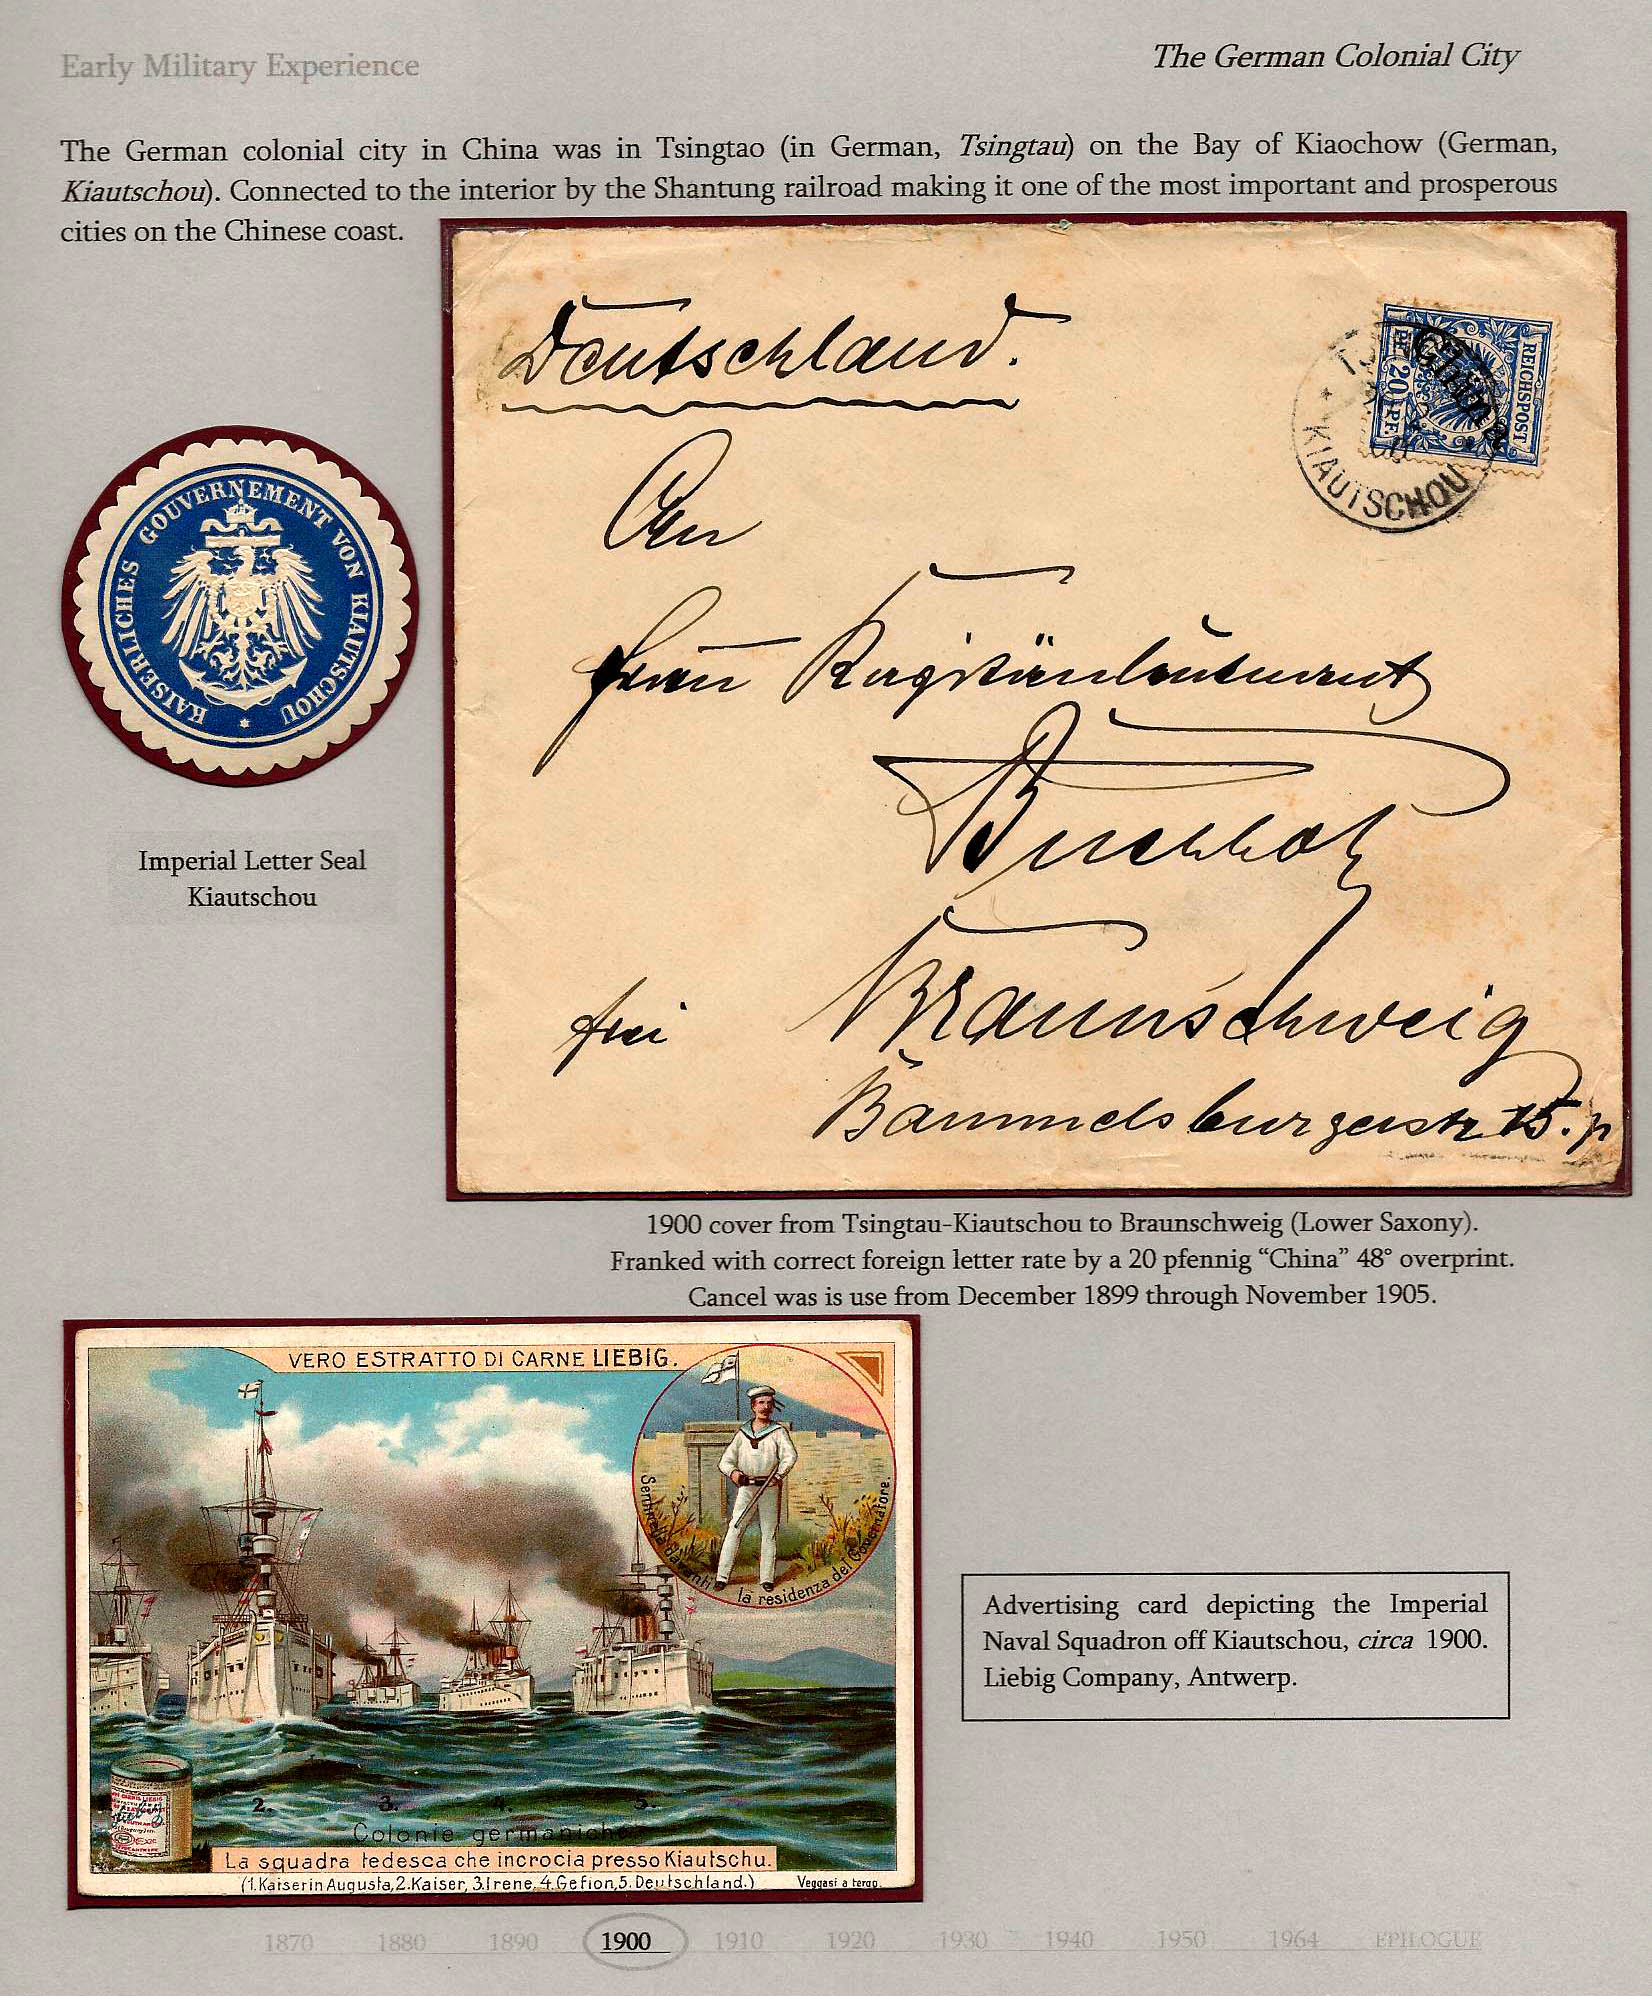 Early Military Experience
The German Colonial City
The German colonial city in China was in Tsingtao (in German, Tsingtau) on the Bay of Kiaochow (German,
Kiautschou). Connected to the interior by the Shantung railroad making it one of the most important and prosperous
cities on the Chinese coast.
Deutschland.
REICHSPOST
20 PF.
China
KIAUTSCHOU
An
Frau Kapitänleutnant
Buchholz
frei Braunschweig
15.
KAISERLICHES GOUVERNEMENT VON KIAUTSCHOU
Imperial Letter Seal
Kiautschou
1900 cover from Tsingtau-Kiautschou to Braunschweig (Lower Saxony).
Franked with correct foreign letter rate by a 20 pfennig “China” 48° overprint.
Cancel was is use from December 1899 through November 1905.
VERO ESTRATTO DI CARNE LIEBIG.
Sentinella davanti la residenza del Governatore.
2. 3. 4. 5.
Colonie germaniche
La squadra tedesca che incrocia presso Kiautschu.
(1.Kaiserin Augusta, 2.Kaiser, 3.Irene, 4.Gefion, 5.Deutschland.)
Veggasi a tergo.
Advertising card depicting the Imperial
Naval Squadron off Kiautschou, circa 1900.
Liebig Company, Antwerp.
1870 1880 1890 1900 1910 1920 1930 1940 1950 1964 EPILOGUE